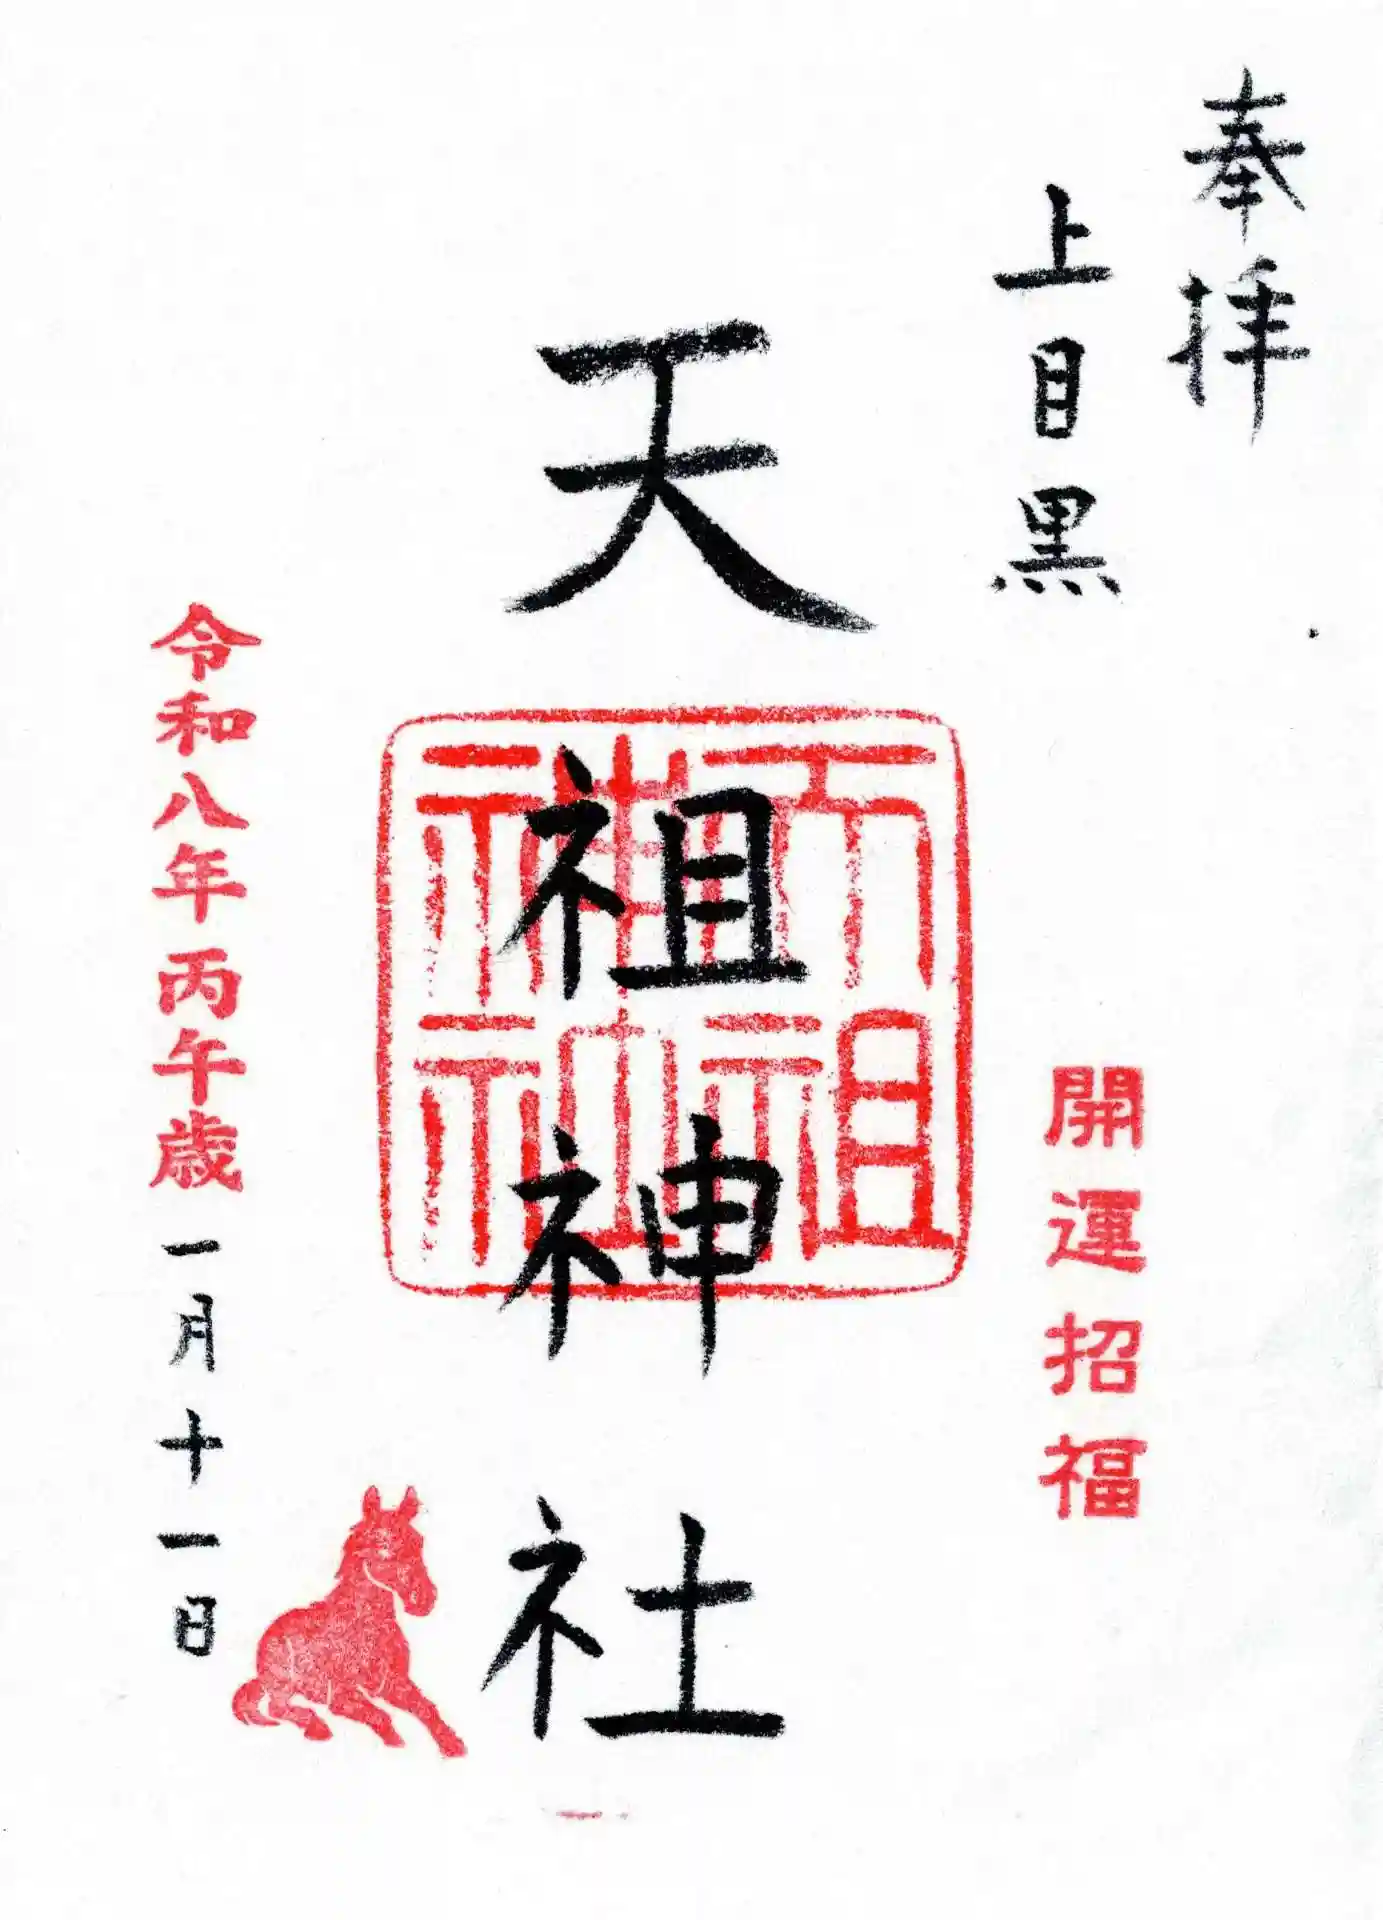 奉拝
上目黒
開運招福
天祖神社
天祖
神社
令和八年丙午歳一月十一日